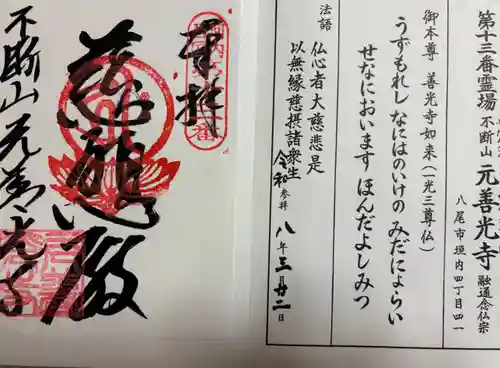 第十三番霊場 不断山 元善光寺 融通念仏宗
八尾市垣内四丁目四一
御本尊 善光寺如来(一光三尊仏)
うずもれし なにはのいけの みだによらい
せなにおいます ほんだよしみつ
法語
仏心者大慈悲是
以無縁慈摂諸衆生
令和 参拝 八年三月廿二日
奉拝
不断山 元善光寺